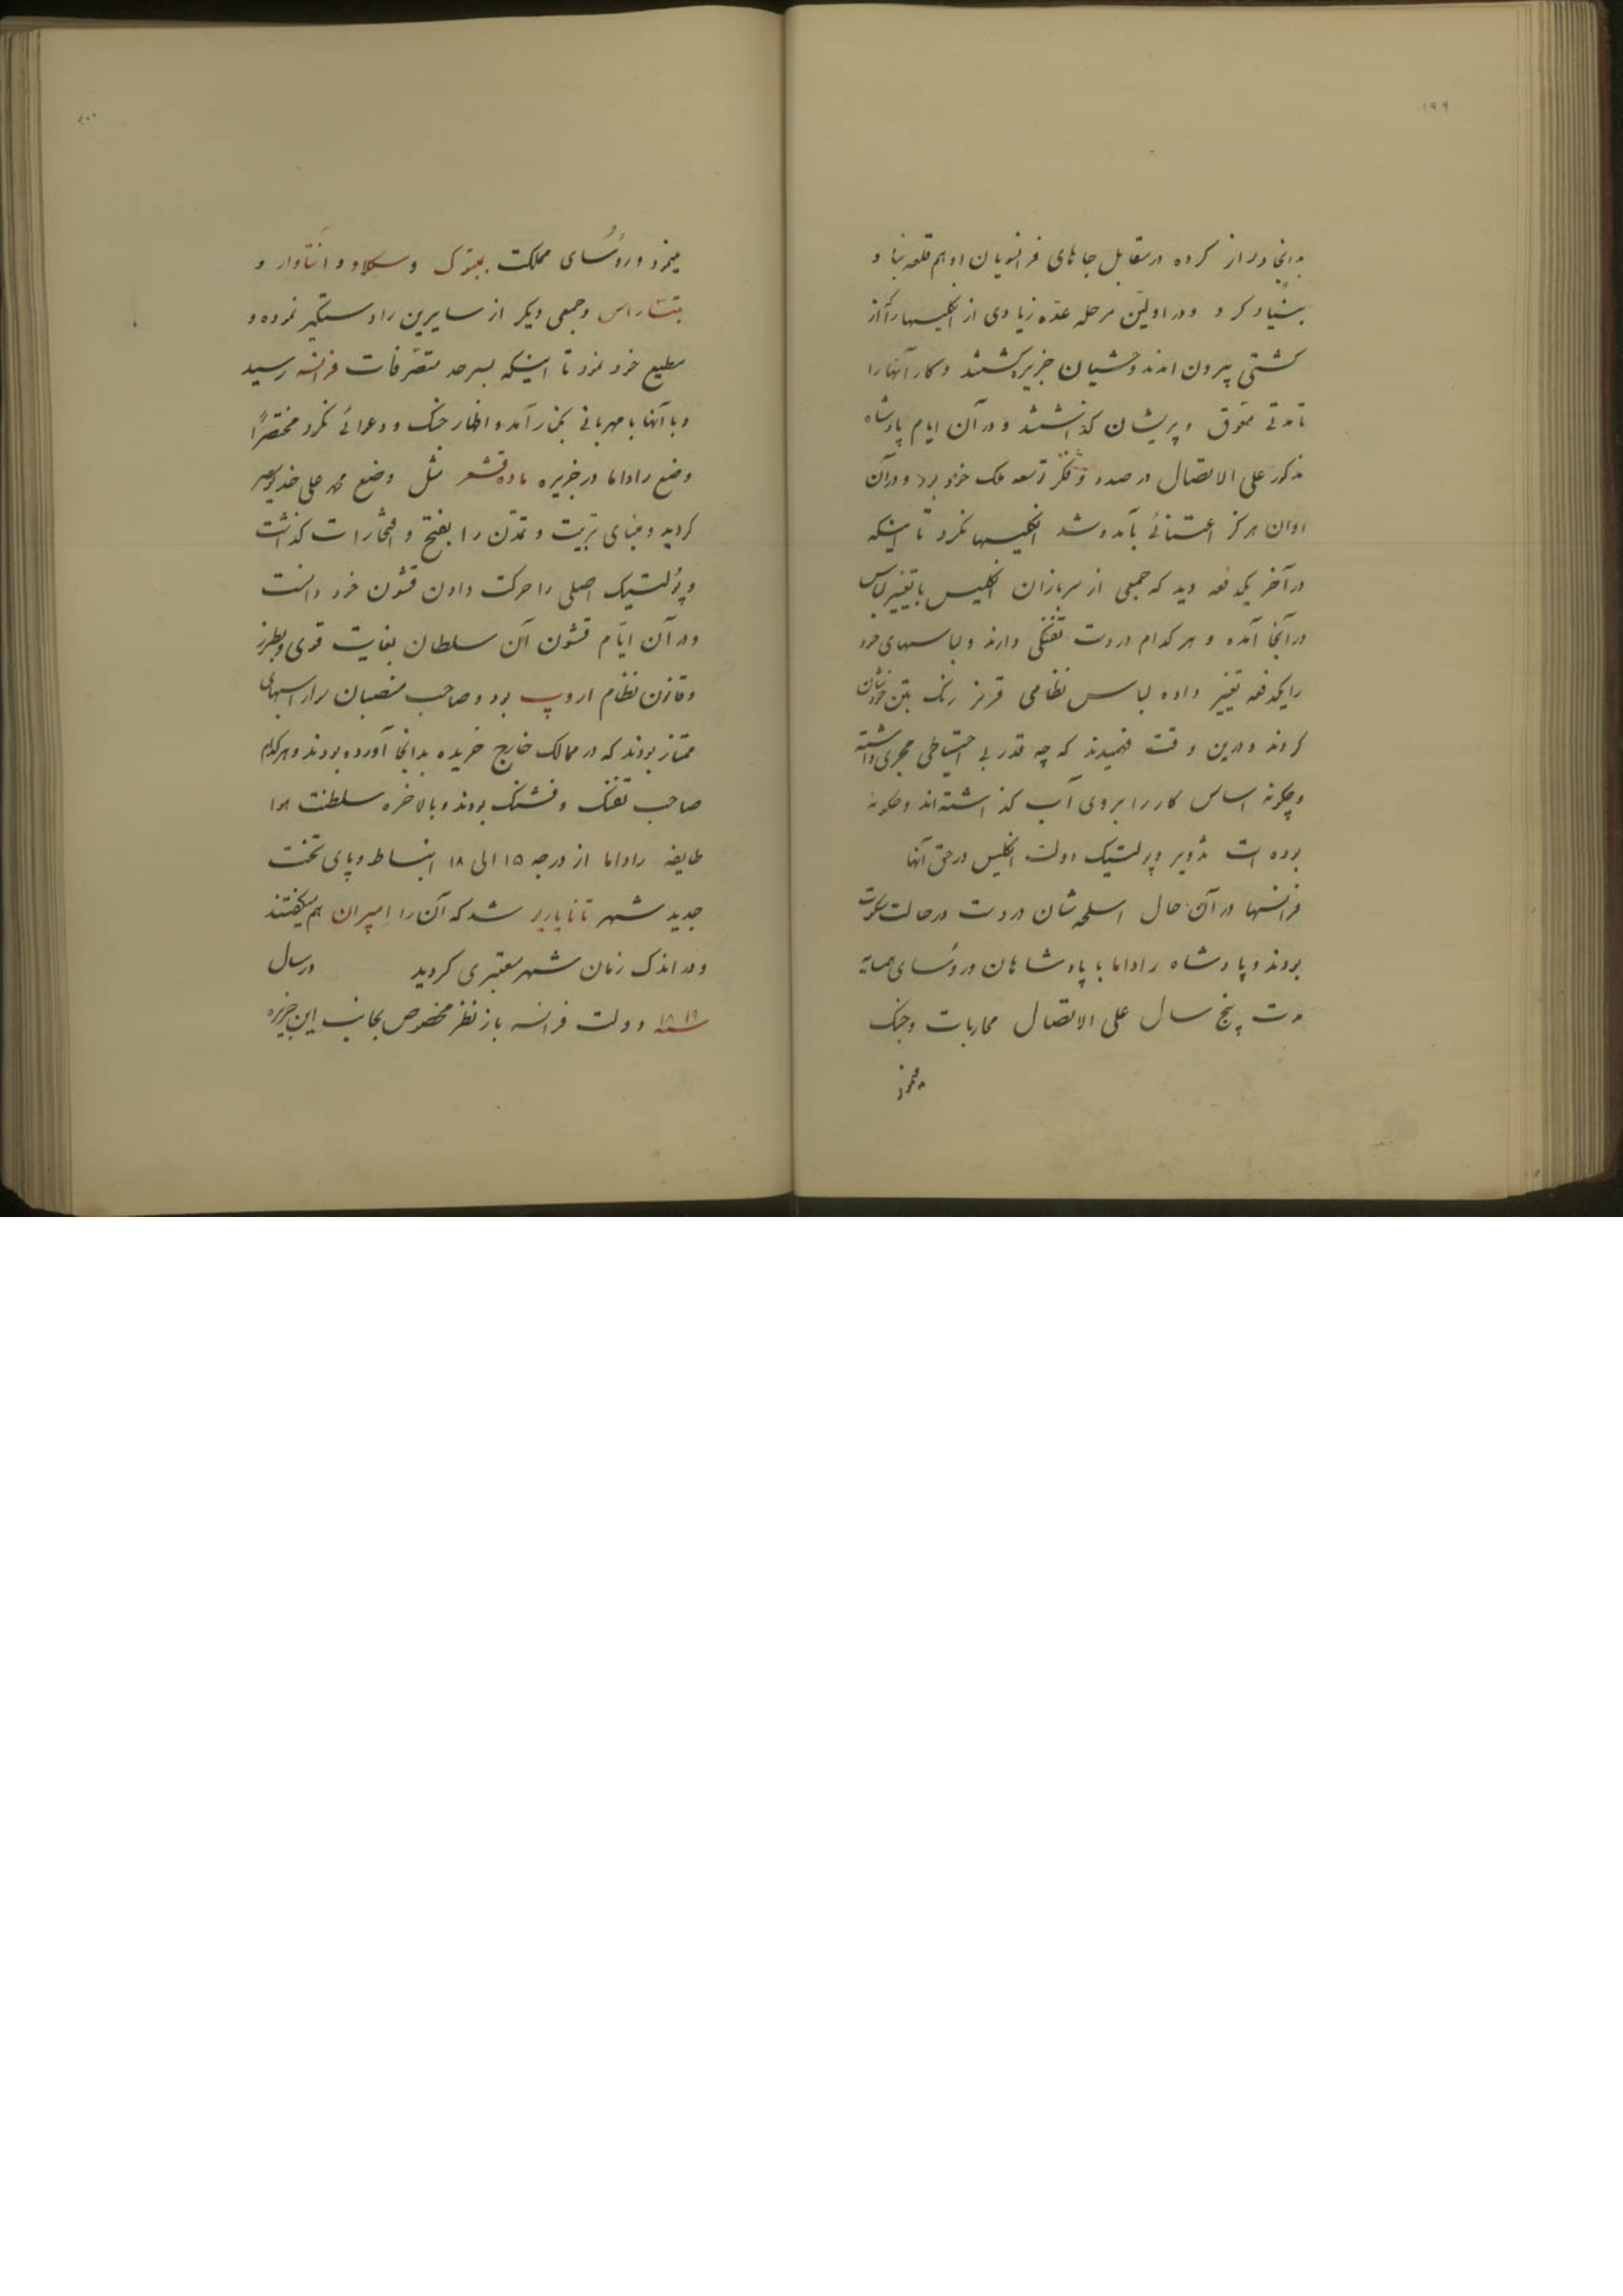 ۱۹۹
بدانجا دراز کرده در مقابل جاهای فرانسویان او هم قلعه بنا و
بنیاد کرد و در اولین مرحله عده زیادی از انگلیسها را که از
کشتی بیرون آمدند وحشیان جزیره کشتند و کار آنها را
تا مدتی معوق و پریشان گذاشتند و در آن ایام پادشاه
مذکور علی الاتصال در صدد و فکر توسعه ملک خود بود و در آن
اوان هرگز اعتنائی بآمد و شد انگلیسها نکرد تا اینکه
در آخر یکدفعه دید که جمعی از سربازان انگلیس با تغییر لباس
در آنجا آمده و هر کدام در دست تفنگی دارند و لباسهای خود
را یکدفعه تغییر داده لباس نظامی قرمز رنگ بتن خودشان
کردند و درین وقت فهمیدند که چه قدر بی احتیاطی مجری داشته
و چگونه اساس کار را بروی آب گذاشته‌اند و چگونه
بوده است تدویر و پولتیک دولت انگلیس در حق آنها
فرانسها در آن حال اسلحه شان در دست در حالت سکوت
بودند و پادشاه راداما با پادشاهان و رؤسای همسایه
مدت پنج سال علی الاتصال محاربات و جنگ
مینمود
۲۰۰
مینمود و رؤسای مملکت و و آنتاوار و
وجمعی دیگر از سایرین را دستگیر نموده و
مطیع خود نمود تا اینکه بسرحد متصرفات فرانسه رسید
و با آنها با مهربانی کنار آمد و اظهار جنگ و دعوائی نکرد مختصراً
وضع راداما در جزیره ماده قشقر مثل وضع محمد علی خدیو مصر
گردید و بنای تربیت و تمدن را بفتح و افتخارات گذاشت
و پولتیک اصلی را حرکت دادن قشون خود دانست
و در آن ایام قشون آن سلطان بغایت قوی و بطرز
و قانون نظام اروپ بود و صاحب منصبان سوار اسبهای
ممتاز بودند که در ممالک خارج خریده بدانجا آورده بودند و هر کدام
صاحب تفنگ و فشنگ بودند و بالاخره سلطنت هوا
طایفه راداما از درجه ۱۵ الی ۱۸ انبساط و پای تخت
جدید شهر شد که آن را امیران هم میگفتند
و در اندک زمان شهر معتبری گردید در سال
۱۸۱۹ دولت فرانسه باز نظر مخصوص بجانب این جزیره